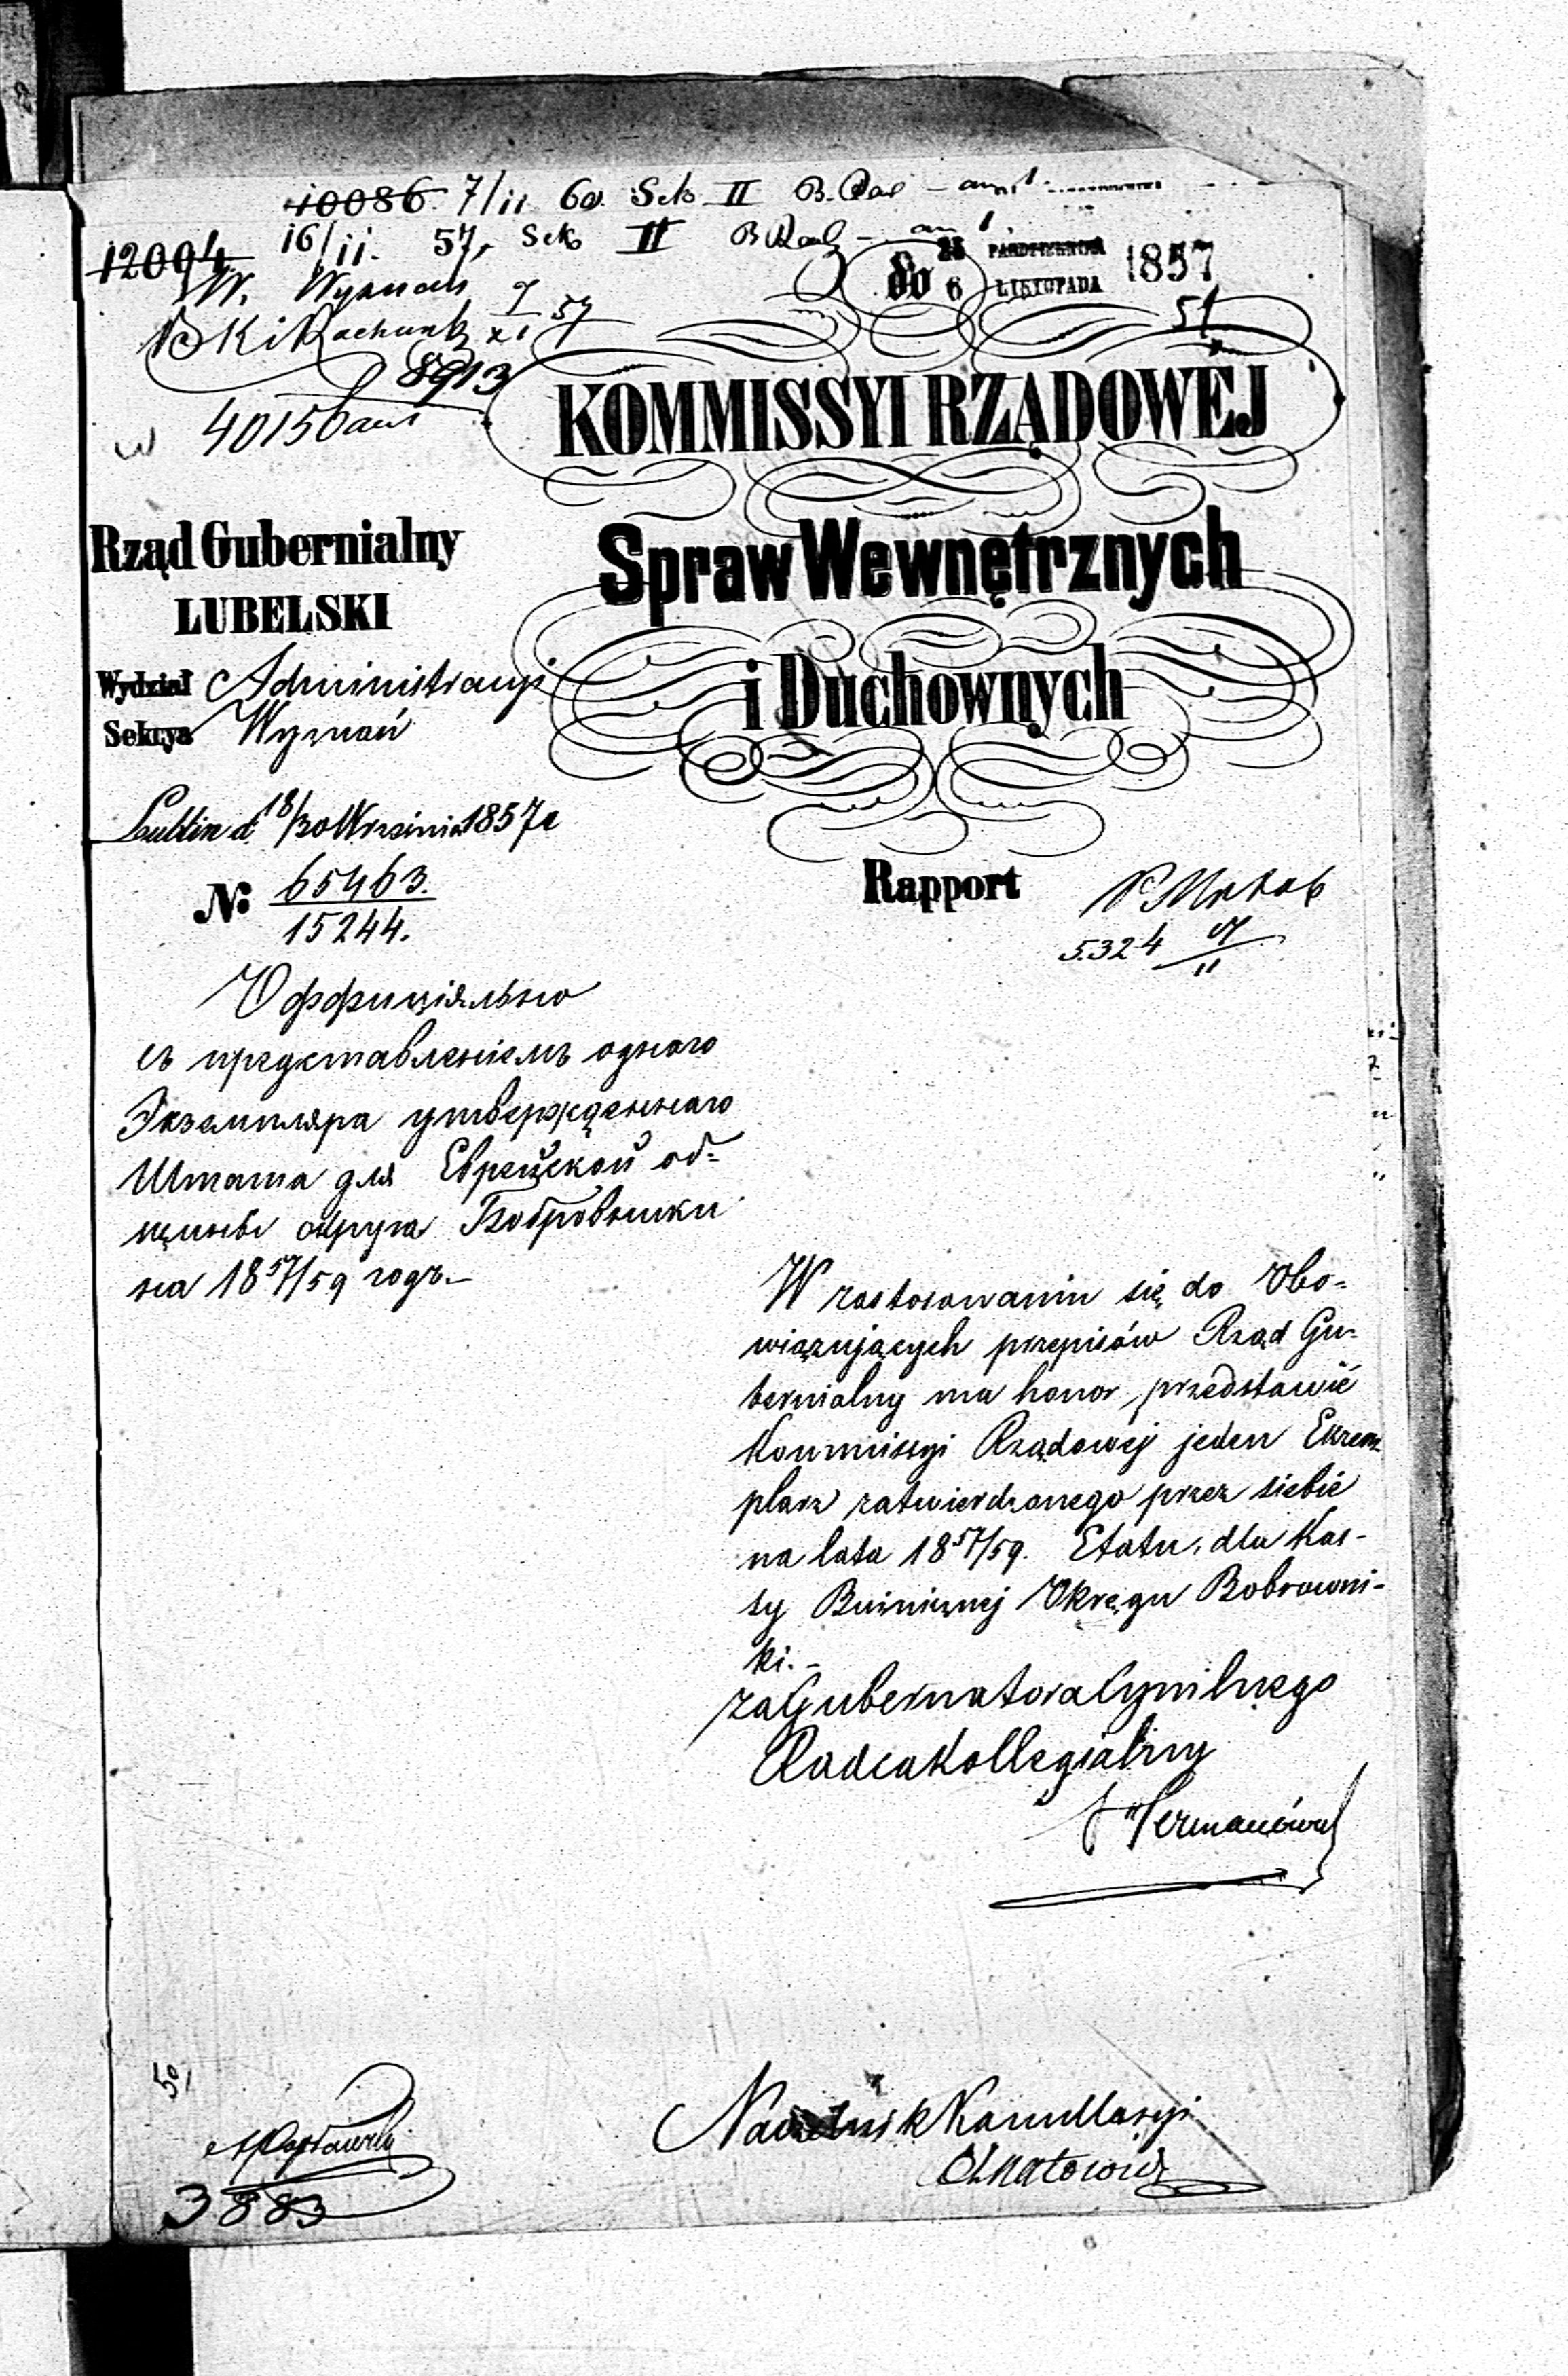 10086. 7/11 60. Sek II
12004 16/11. 57, Sek II
W. Wyznań
8913
40150
PAŹDZIERNIKA
6 LISTOPADA 1857
51
KOMMISSYI RZĄDOWEJ
Spraw Wewnętrznych
i Duchownych
Rząd Gubernialny
LUBELSKI
Wydział Administracyi
Sekcya Wyznań
Lublin d. 18/30 Września 1857 r
№ 65463.
15244.
Rapport
5324
Оффиціяльно
съ представленіемъ одного
Экземпляра утвержденнаго
Штата для Еврейской об-
щины округа Бобровники
на 1857/59 годъ.-
W zastosowaniu się do Obo-
wiązujących przepisów Rząd Gu-
bernialny ma honor przedstawić
Kommissyi Rządowej jeden Exem-
plarz zatwierdzonego przez siebie
na lata 1857/59. Etatu, dla Kas-
sy Bożnicznej Okręgu Bobrowni-
ki.-
za Gubernatora Cywilnego
Radca Kollegialny
Naczelnik Kancellaryi
50,
3883